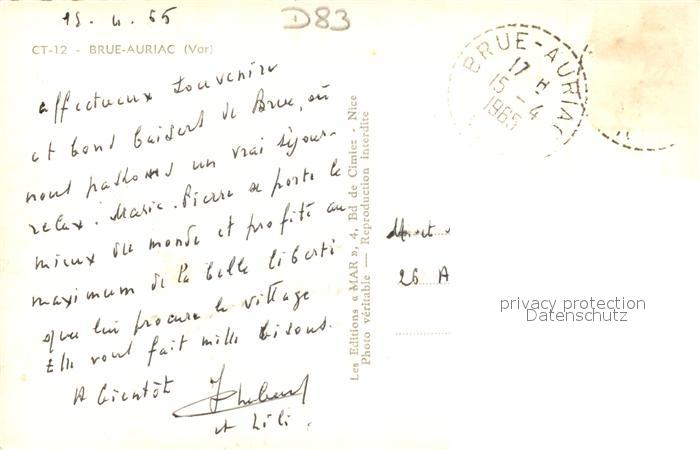 15.4.65
D83
CT-12 - BRUE-AURIAC (Var)
affectueux souvenirs
et bons baisers de Brue, où
nous passons un vrai séjour-
relax. Marie-Pierre se porte le
mieux du monde et profite au
maximum de la belle liberté
que lui procure le village
Elle vous fait mille bisous.
A bientôt
et Lili.
Les Editions « MAR », 4, Bd de Cimiez - Nice
Photo véritable - Reproduction interdite
BRUE-AURIAC
17 H
15-4
1965
26 A
privacy protection
Datenschutz